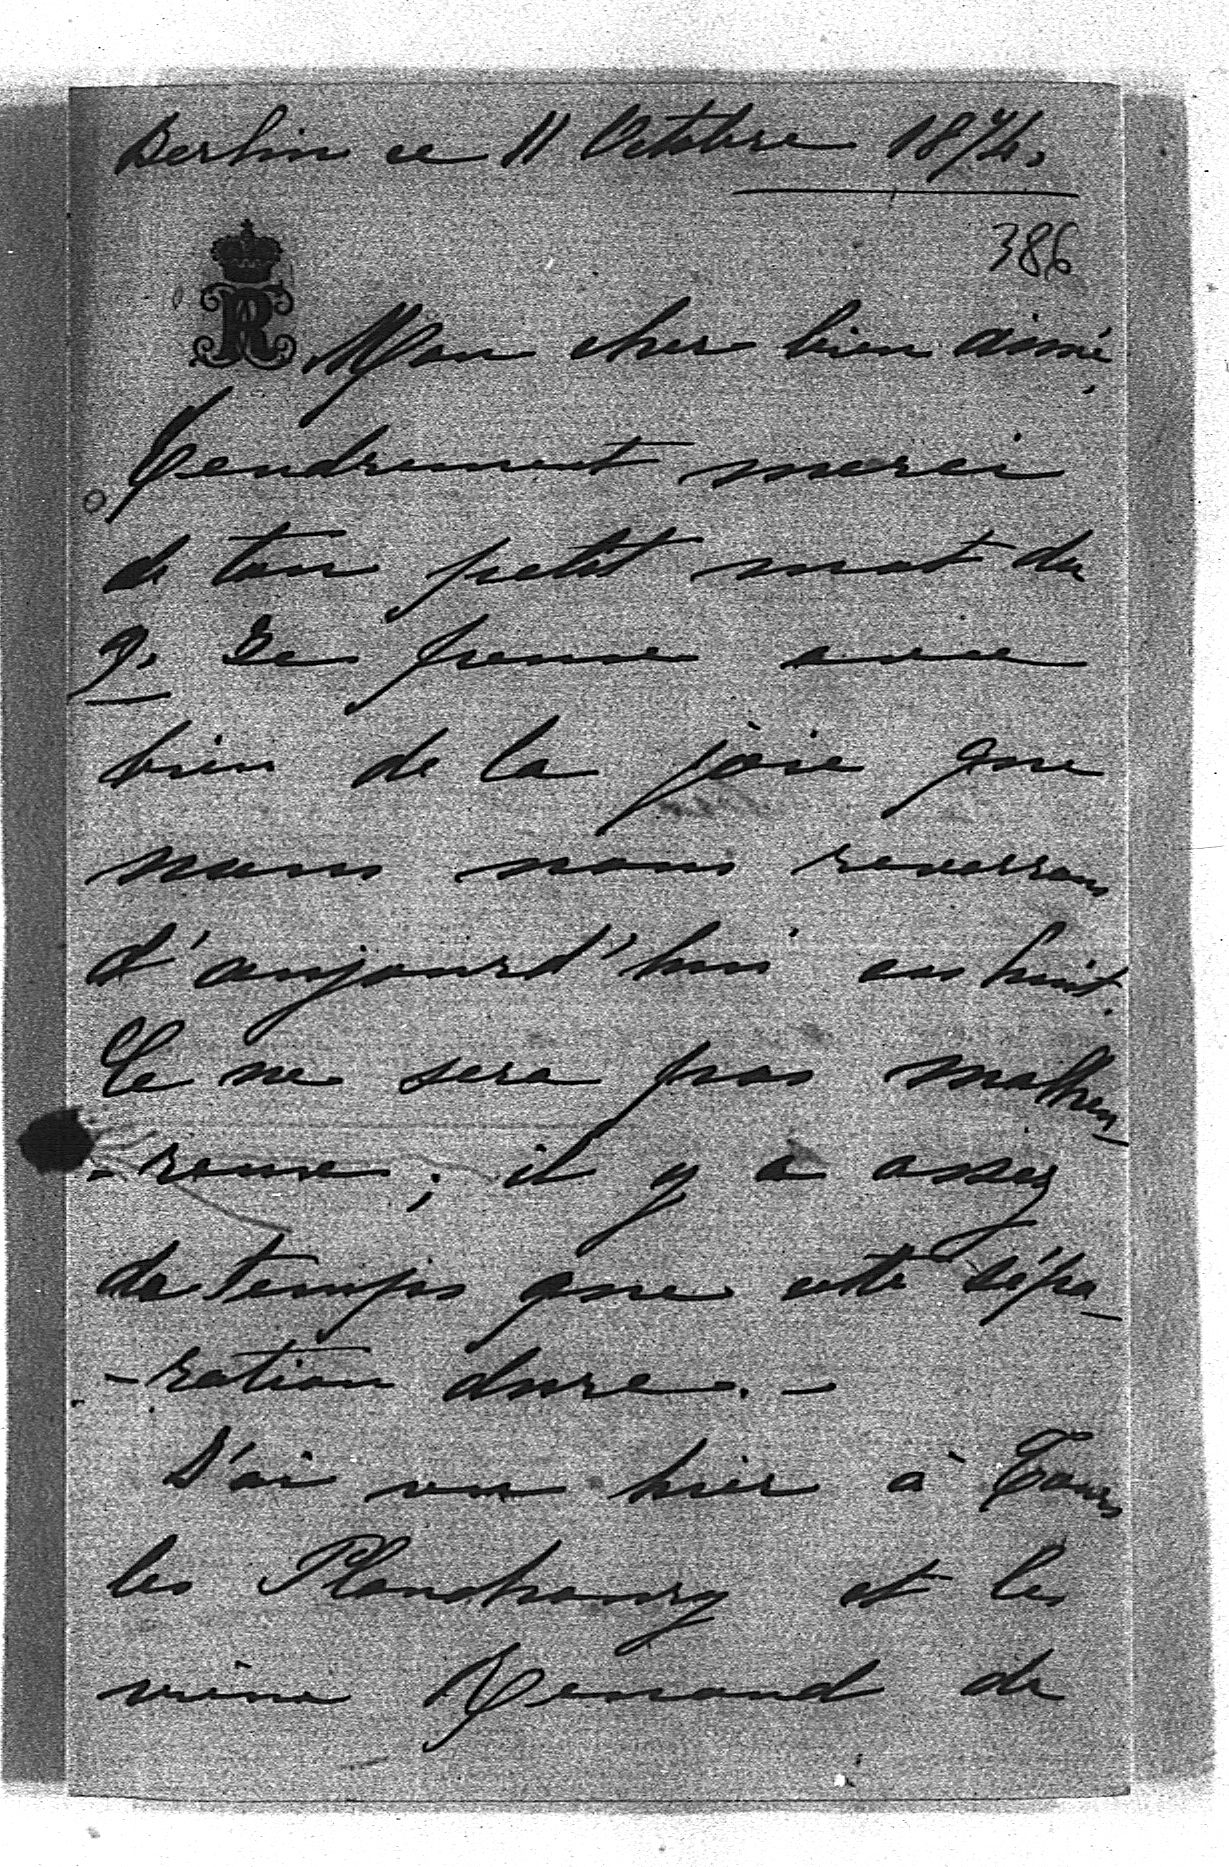 Berlin ce 11 Octobre 1874.
386
R Mon cher bien aimé,
Tendrement merci
de ton petit mot du
9. Je pense avec
bien de la joie que
nous nous reverrons
d'aujourd'hui en huit.
Ce ne sera pas malheu-
-reux; il y a assez
de temps que cette sépa-
-ration dure. -
J'ai vu hier à Tours
les et les
de